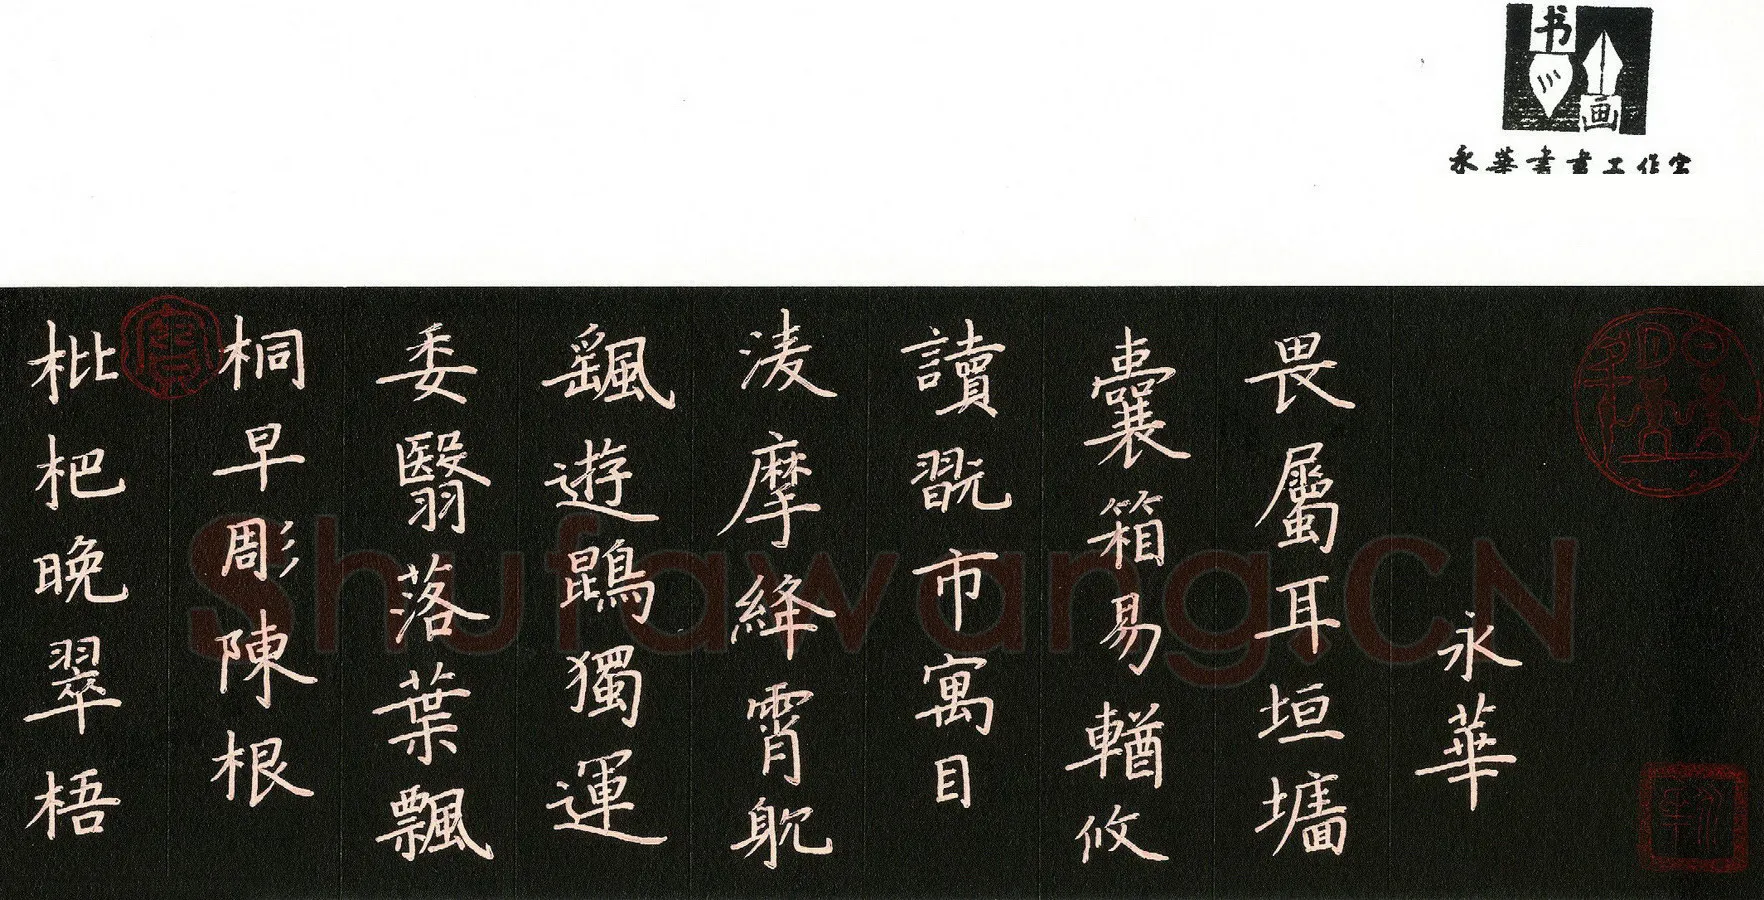 书画
永華書畫工作室
枇杷晚翠梧
桐早彫陳根
委翳落葉飄
颻遊鵾獨運
淩摩絳霄躭
讀翫市寓目
囊箱易輶攸
畏屬耳垣墻
永華
Shufawang.CN